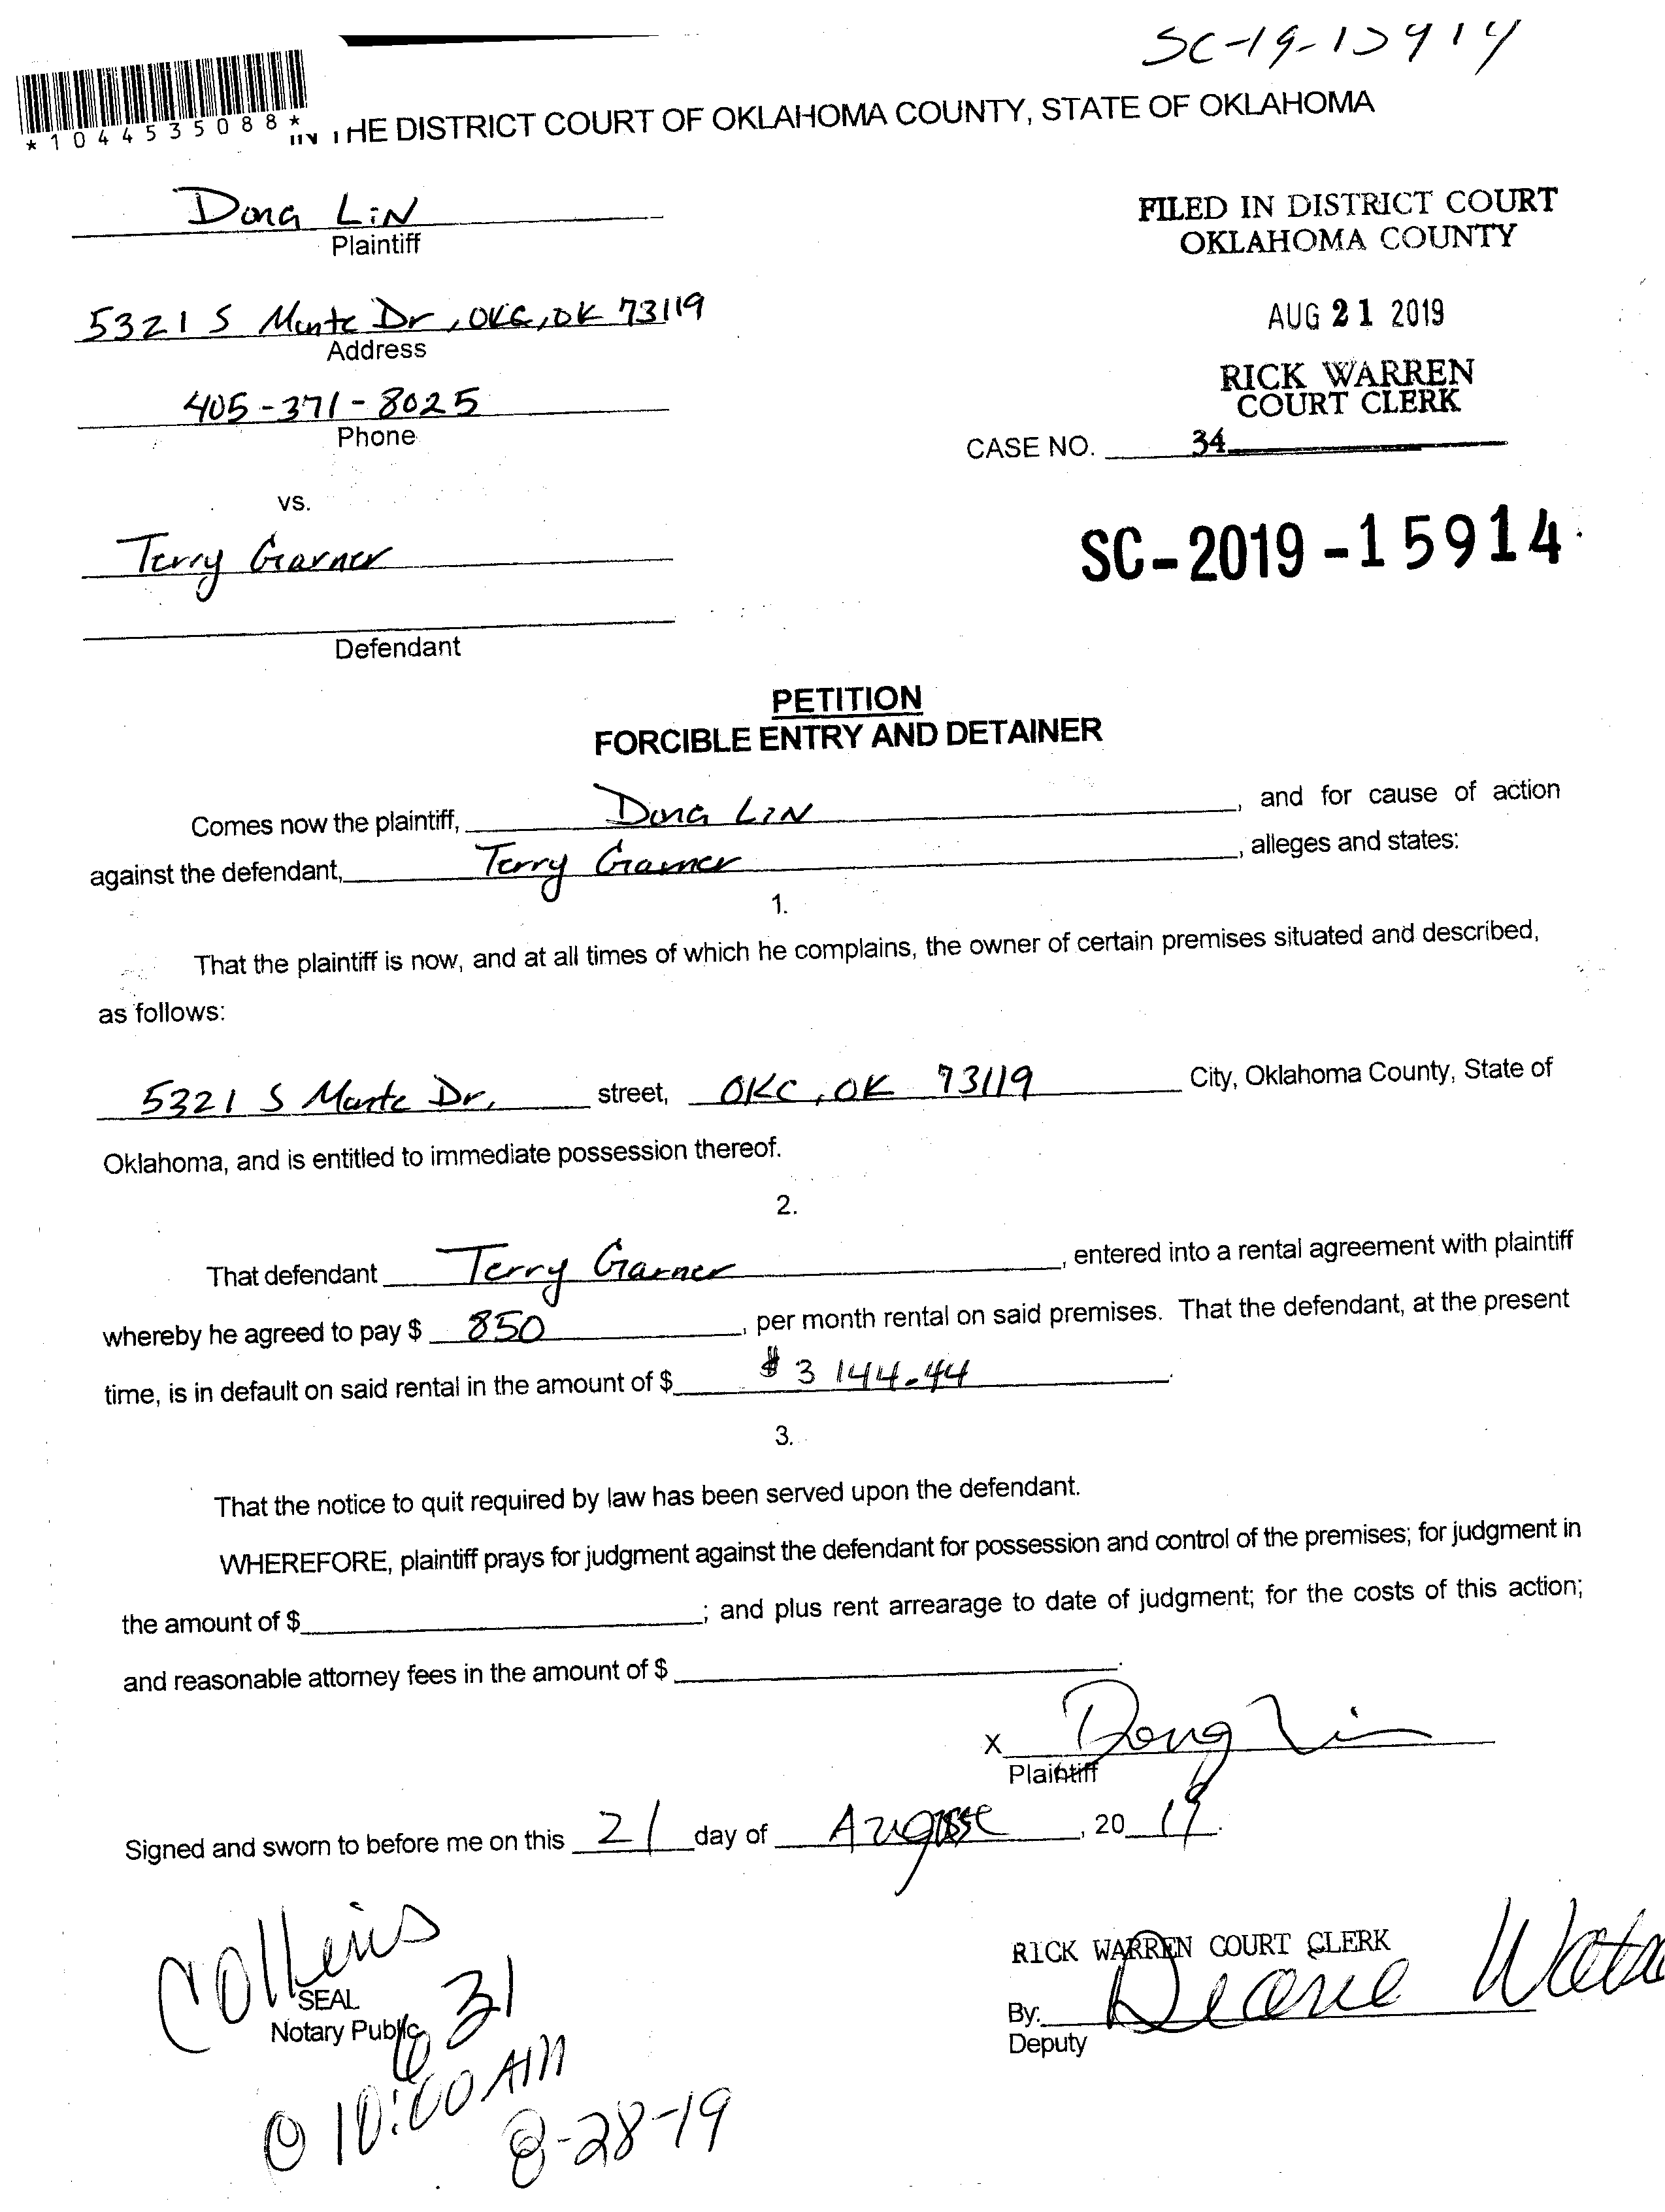 SC-19-15914
*1044535088*
IN THE DISTRICT COURT OF OKLAHOMA COUNTY, STATE OF OKLAHOMA
Dong LiN
Plaintiff
FILED IN DISTRICT COURT
OKLAHOMA COUNTY
5321 S Monte Dr, OKC, OK 73119
Address
AUG 21 2019
405-371-8025
Phone
RICK WARREN
COURT CLERK
CASE NO. 34
vs.
Terry Garner
SC-2019-15914
Defendant
PETITION
FORCIBLE ENTRY AND DETAINER
Comes now the plaintiff, Dong LiN, and for cause of action
against the defendant, Terry Garner, alleges and states:
1.
That the plaintiff is now, and at all times of which he complains, the owner of certain premises situated and described,
as follows:
5321 S Monte Dr, street, OKC, OK 73119 City, Oklahoma County, State of
Oklahoma, and is entitled to immediate possession thereof.
2.
That defendant Terry Garner, entered into a rental agreement with plaintiff
whereby he agreed to pay $ 850, per month rental on said premises. That the defendant, at the present
time, is in default on said rental in the amount of $ $3144.44.
3.
That the notice to quit required by law has been served upon the defendant.
WHEREFORE, plaintiff prays for judgment against the defendant for possession and control of the premises; for judgment in
the amount of $; and plus rent arrearage to date of judgment; for the costs of this action;
and reasonable attorney fees in the amount of $.
X Dong Lin
Plaintiff
Signed and sworn to before me on this 21 day of August, 2019.
Collins
SEAL
Notary Public
631
@ 10:00 AM
8-28-19
RICK WARREN COURT CLERK
By: Diane
Deputy